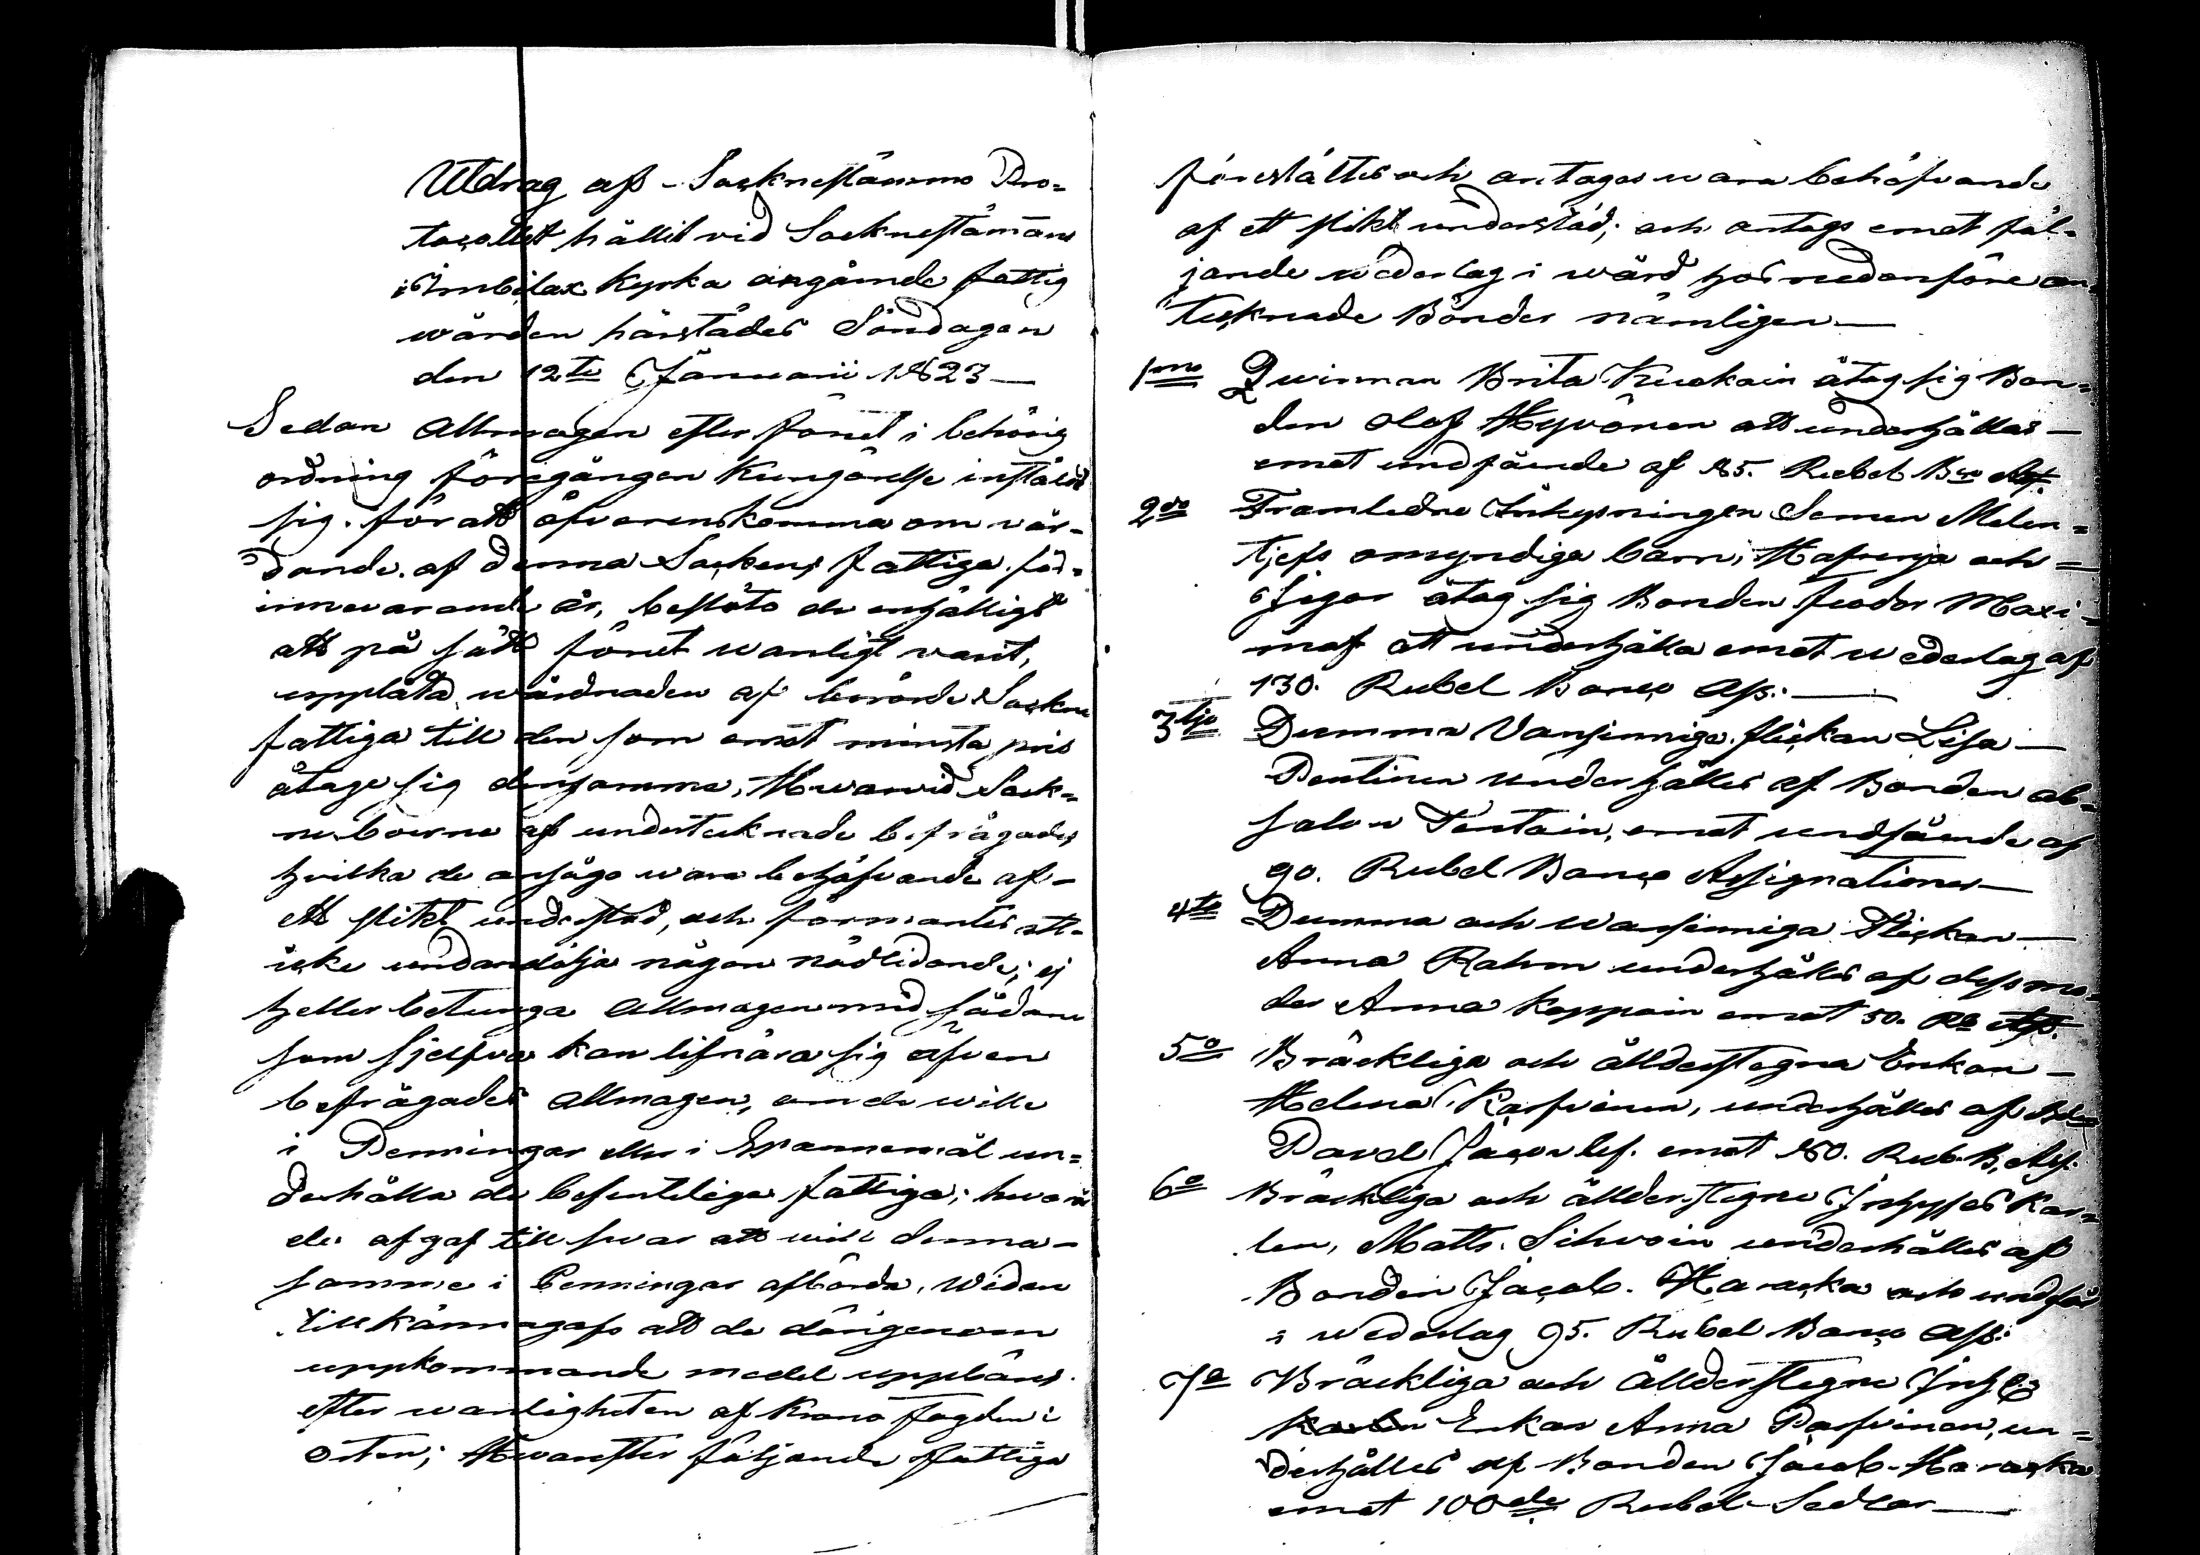 Utdrag af Socknestämmo Pro-
tocollet hållit vid Socknestämān
i Imbilax Kyrka angående fattig
wården härstädes Söndagen
den 12te Januarii 1823 —
Sedan Allmogen efter förut i behörig
ordning föregången Kungörelse instäldt
sig för att öfverenskomma om vår-
dande af denna Sockens fattiga för
innevarande år, beslöto de enhälligt
att på sätt förut wanligt varit,
upplåta wårdnaden af berörde Sockne
fattiga till den som emot minsta pris
åtager sig densamma, Hwarvid Sock-
neboerne af undertecknade befrågades
hvilka de ansågo wara behöfvande af
ett slikt understöd, och förmantes att
icke undandölja någon nödlidande, ej
heller betunga Allmogen med sådane
som sjelfva kan lifnära sig äfven
befrågades Allmogen, om de wille
i Penningar eller i Spannemål un-
derhålla de befinteliga fattiga; hwarå
de afgaf till svar att wilja denna
samma i Penningar afbörda, Widare
tillkännagafs att de därigenom
uppkommande medel uppbäres
efter wanligheten af Krono fogden i
Orten; Hwarefter följande fattiga
föreslåttes och antogos wara behöfvande
af ett slikt understöd; och antogs emot föl-
jande wederlag i wård hos nedanföre an-
tecknade Bönder nämligen —
1mo Qwinnan Brita Kuokain åtog sig Bon-
den Olof Hyvönen att underhållas —
emot undfående af 85. Rubel Bco Ass.
2do Framledne Inhysningen Semen Melen-
tjefs omyndiga barn, Hafronja och
Jegor åtog sig Bonden Feodor Maxi-
mof att underhålla emot wederlag af
130. Rubel Banco Ass. —
3tio Dumma Vansinniga flickan Lisa —
Pentinen underhålles af Bonden Ab-
salon Tentain, emot undfående af
90. Rubel Banco Assignationer —
4to Dumma och wansinniga Flickan —
Anna Rahm underhålles af dess mo-
der Anna Koppain emot 50. Rb Ass.
5o Bräckliga och ålderstegna Enkan —
Helena Karfvinen, underhålles af
Pavel Jacovlef emot 80. Rub. B. Ass.
6o Bräckliga och ålderstegne Inhyses Kar-
len, Matts Sihvoin underhålles af
Bonden Jacob Haracka och undfår
i wederlag 95. Rubel Banco Ass.
7o Bräckliga och ålderstegne Inhys
Enkan Anna Parfvinen, un-
derhålles af Bonden Jacob Haracka
emot 100de Rubel Sedlar —